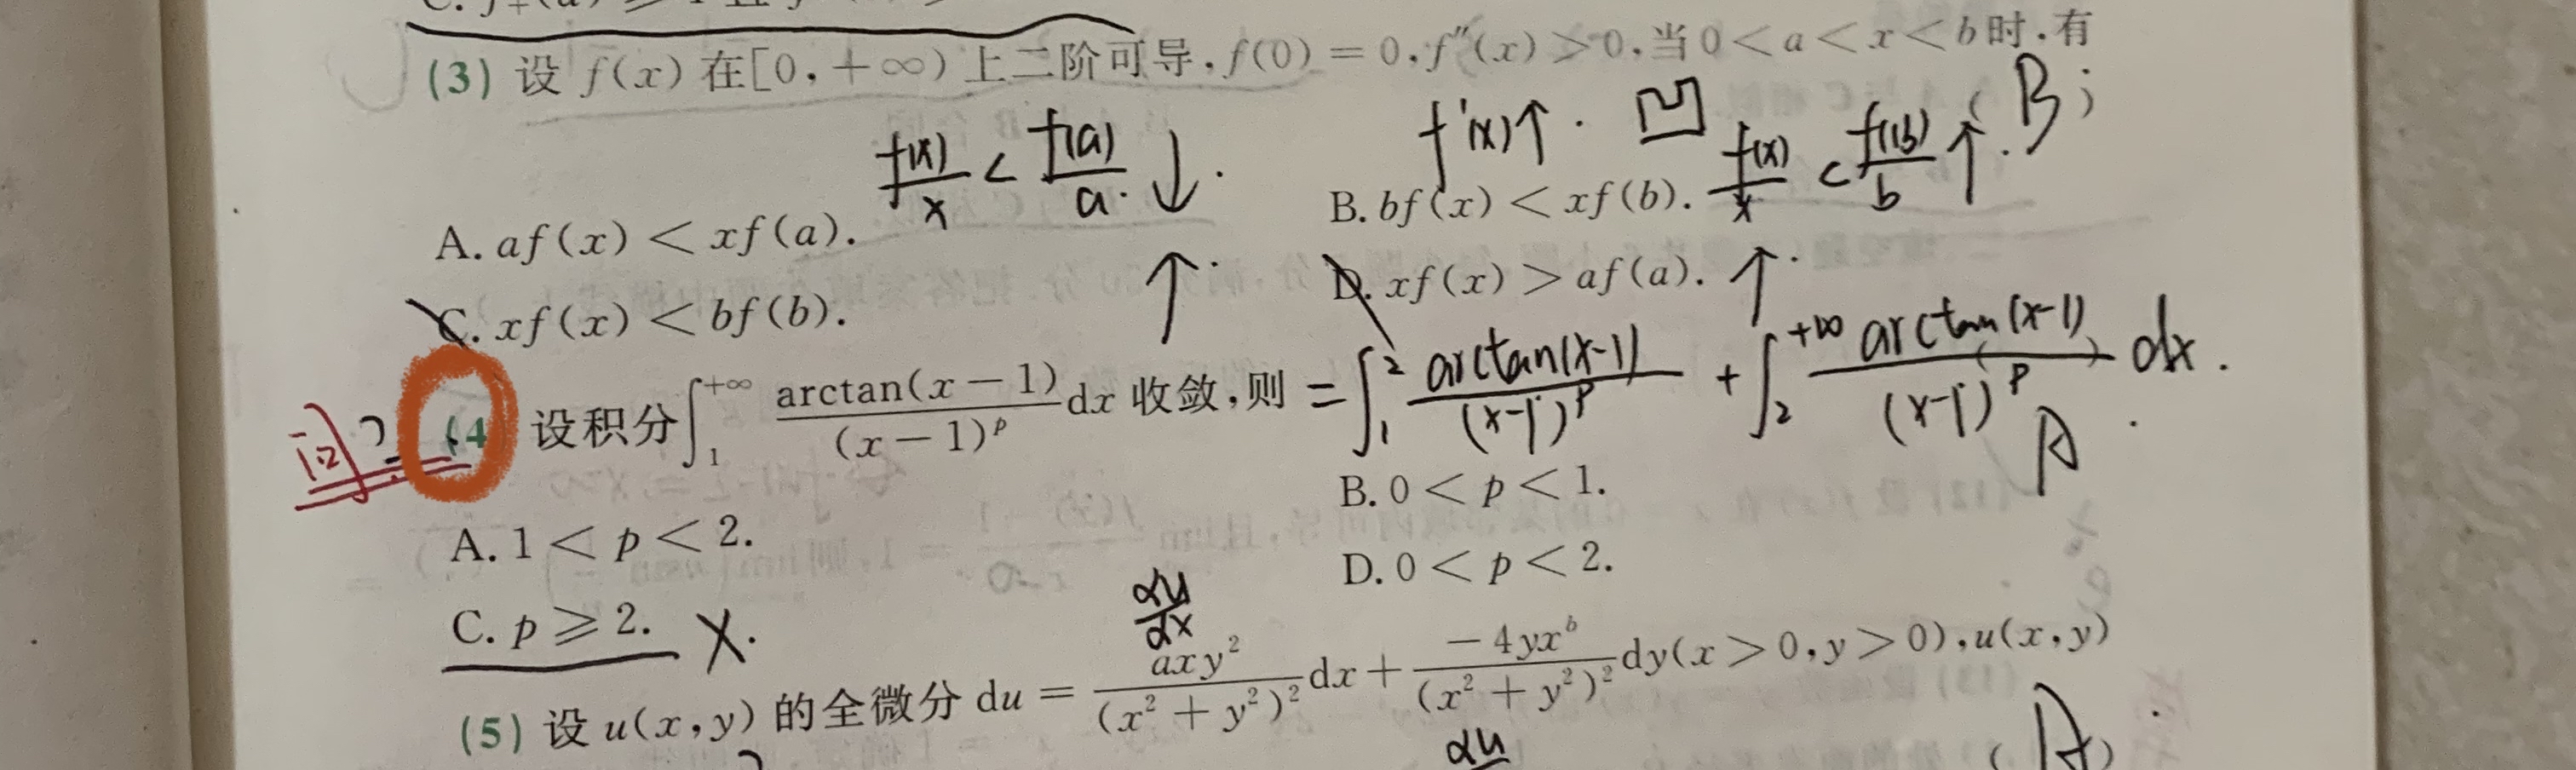 (3) 设 f(x) 在[0,+∞) 上二阶可导,f(0) = 0,f″(x) > 0,当 0 < a < x < b 时,有
f'(x)↑. 凹 ( B )
A. af(x) < xf(a). f(x)/x < f(a)/a. ↓.
B. bf(x) < xf(b). f(x)/x < f(b)/b ↑.
C. xf(x) < bf(b). ↑.
D. xf(x) > af(a). ↑.
(4 设积分∫₁^{+∞} arctan(x − 1)/(x − 1)^p dx 收敛,则 = ∫₁² arctan(x-1)/(x-1)^p + ∫₂^{+∞} arctan(x-1)/(x-1)^p dx.
A
A. 1 < p < 2.
B. 0 < p < 1.
C. p ⩾ 2. X.
D. 0 < p < 2.
∂u/∂x
(5) 设 u(x,y) 的全微分 du = axy²/(x² + y²)² dx + −4yx^b/(x² + y²)² dy(x > 0,y > 0),u(x,y)
∂u
( A )